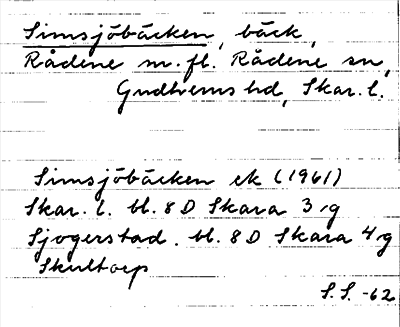 Simsjöbäcken, bäck,
Rådene m.fl. Rådene sn,
Gudhems hd, Skar. l.
Simsjöbäcken ek (1961)
Skar. l. bl. 8 D Skara 3 g
Sjogerstad. bl. 8 D Skara 4 g
Skultorp
S.S. -62